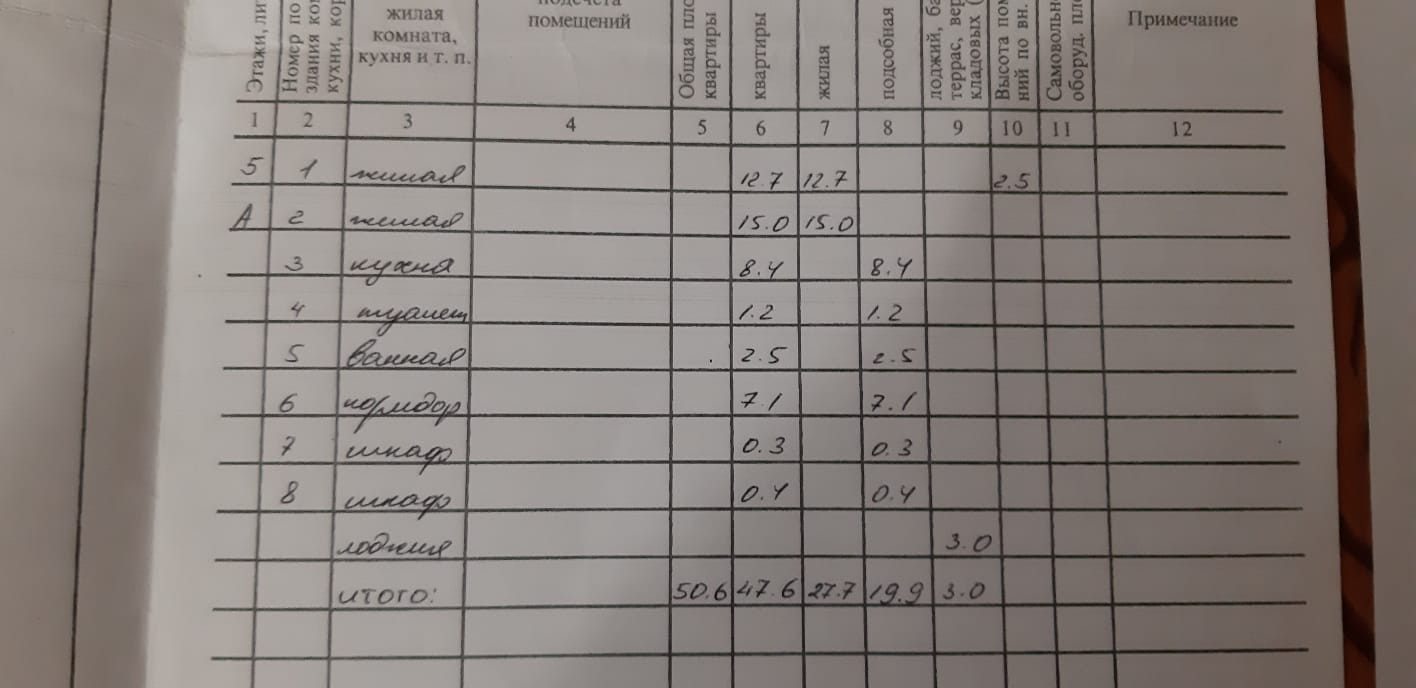 Этажи, ли
Номер по
здания ко
кухни, ко
жилая
комната,
кухня и т. п.
подсчета
помещений
Общая пло
квартиры
квартиры
жилая
подсобная
лоджий, ба
террас, вер
кладовых (
Высота пом
ний по вн.
Самовольн
оборуд. пл
Примечание
1 2 3 4 5 6 7 8 9 10 11 12
5 1 жилая 12.7 12.7 2.5
А 2 жилая 15.0 15.0
3 кухня 8.4 8.4
4 туалет 1.2 1.2
5 ванная 2.5 2.5
6 коридор 7.1 7.1
7 шкаф 0.3 0.3
8 шкаф 0.4 0.4
лоджия 3.0
итого: 50.6 47.6 27.7 19.9 3.0